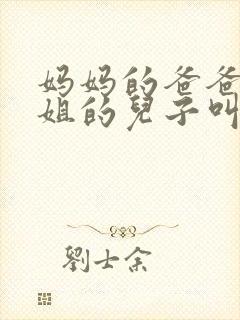 妈妈的爸爸
姐的兒子叫
劉士余